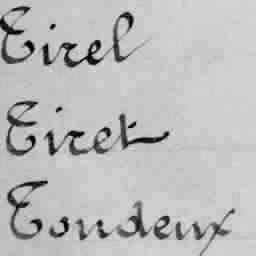 Tirel
Tiret
Tondeux